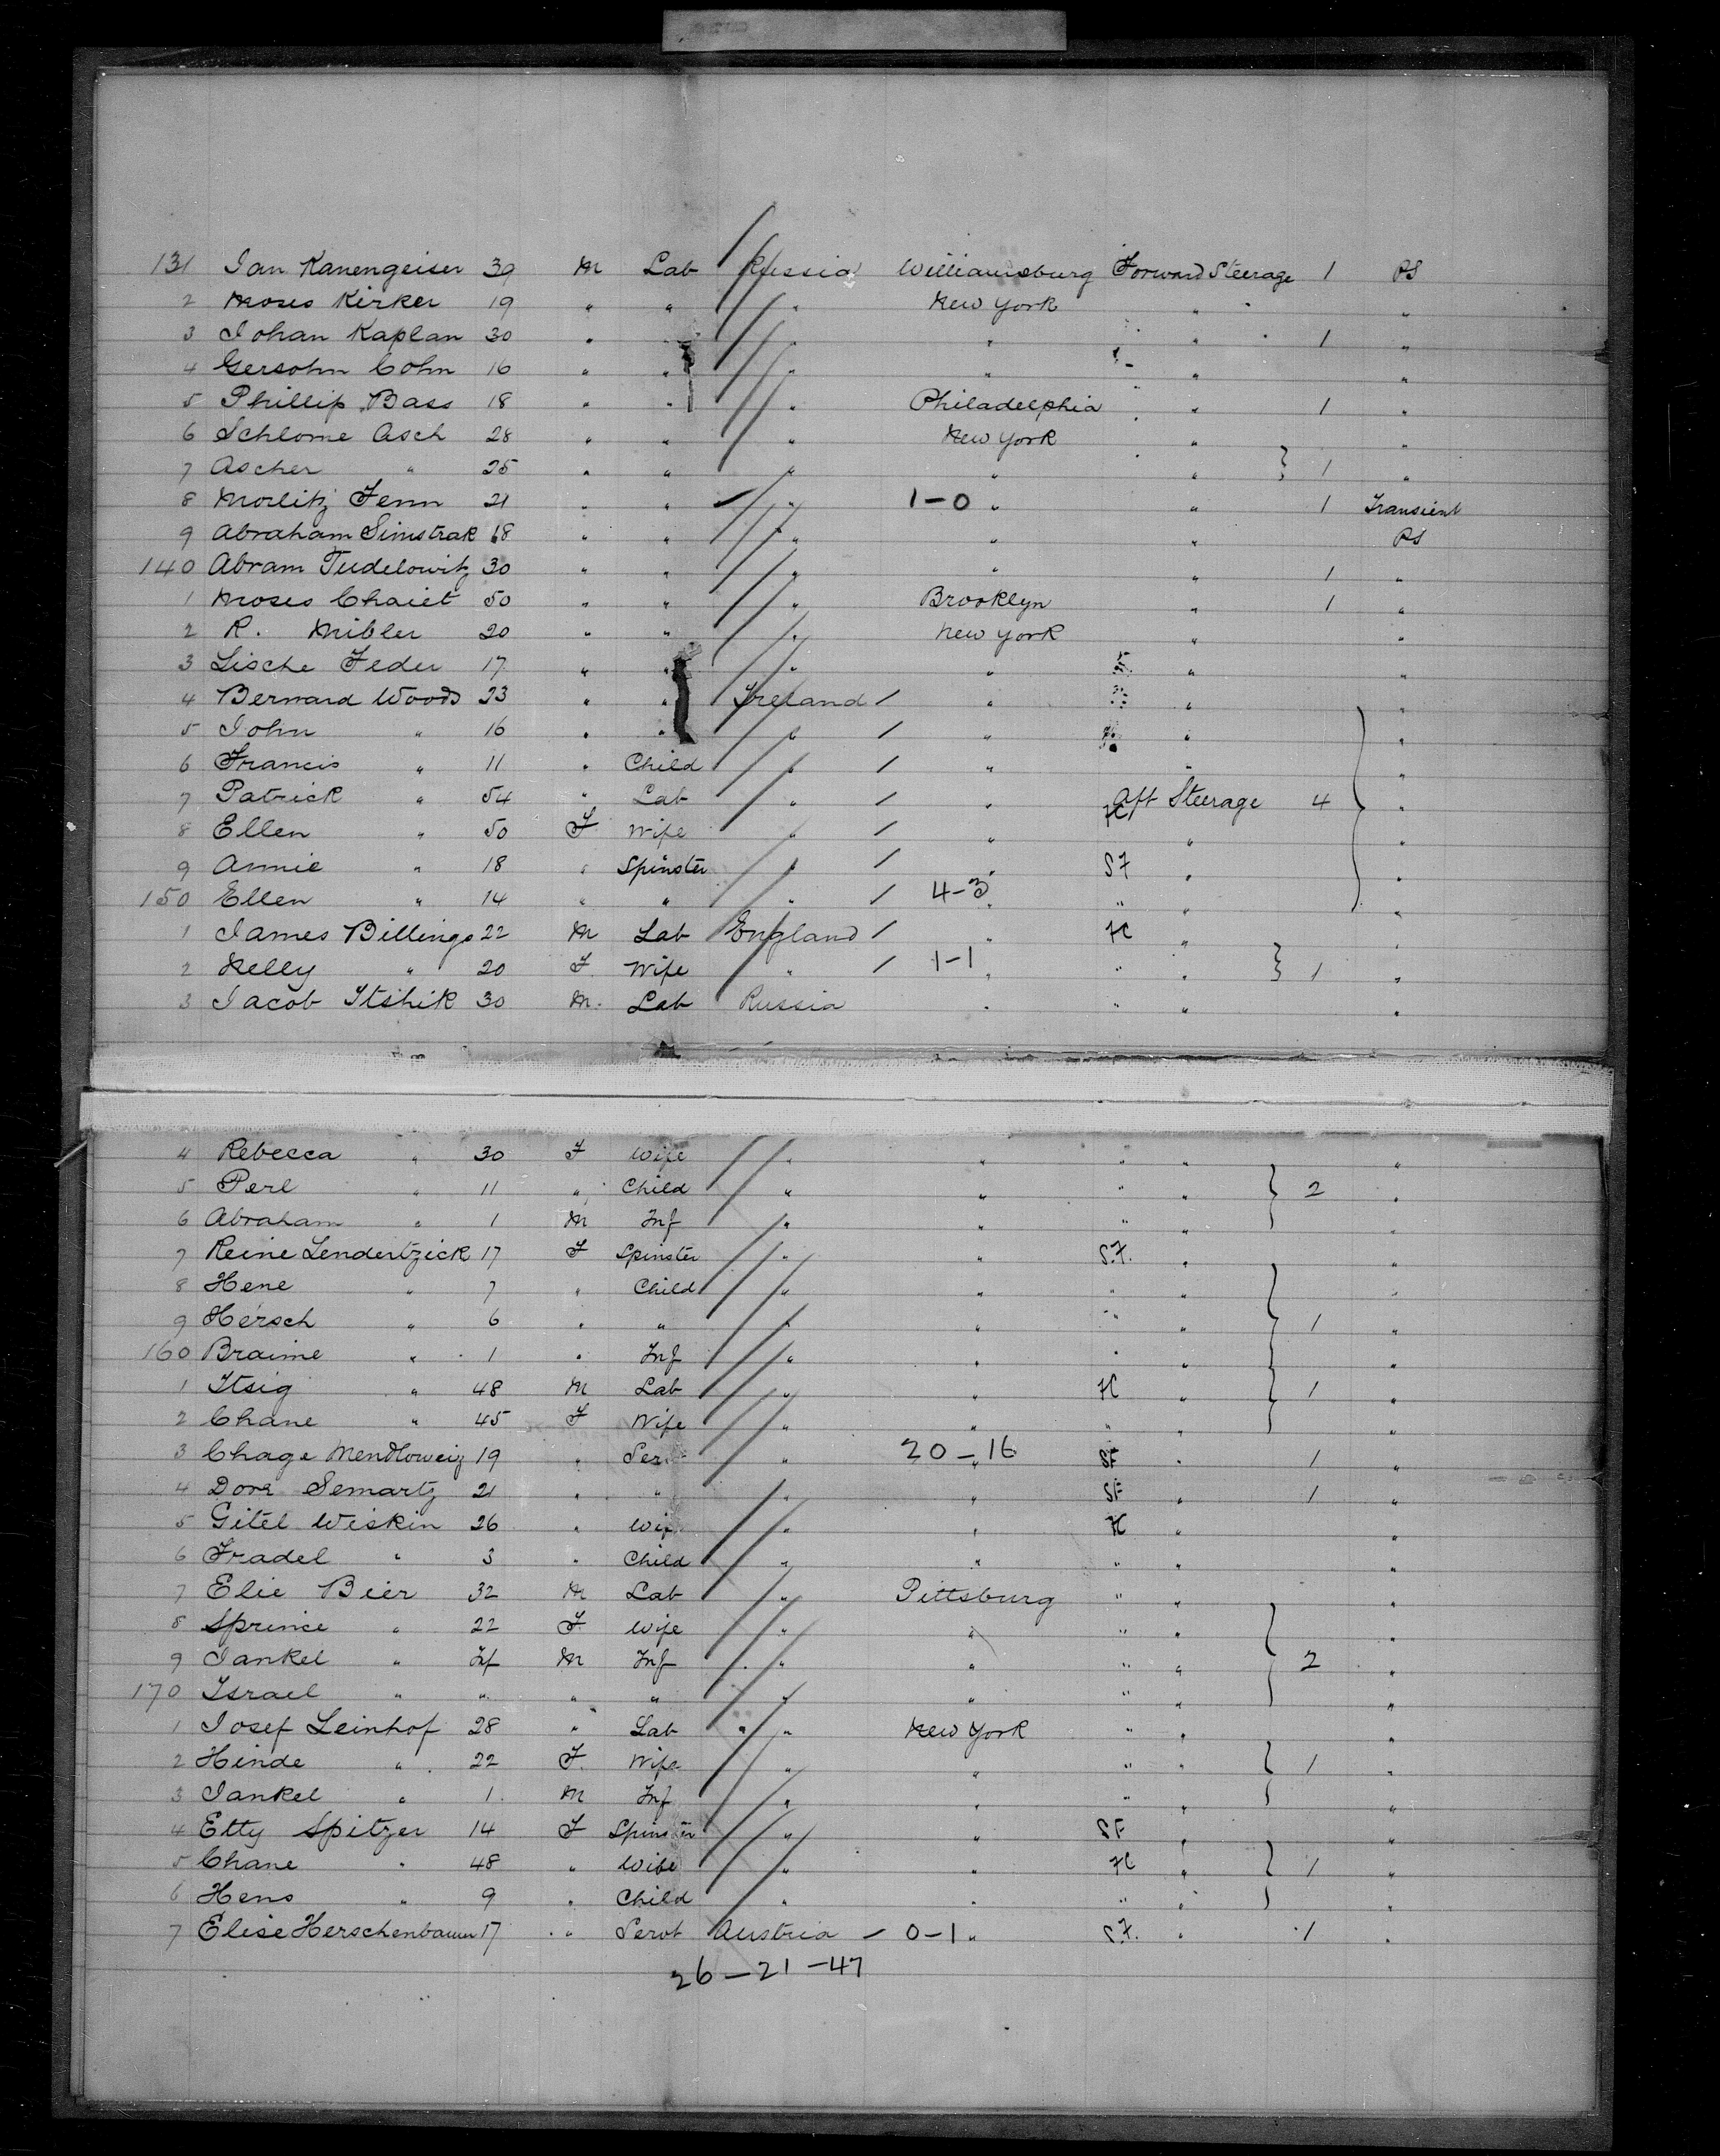 131 Jan Kanengeiser 39 M Lab Russia Williamsburg Forward Steerage 1 PS
2 Moses Kirker 19 " " " New York " "
3 Johan Kaplan 30 " " " " " 1 "
4 Gersohn Cohn 16 " " " " " "
5 Phillip Bass 18 " " " Philadelphia " 1 "
6 Schlome Asch 28 " " " New York " "
7 Ascher " 25 " " " " " } 1 "
8 Morlitz Fenn 21 " " " 1-0 " " 1 Transient
9 Abraham Simstrak 18 " " " " " PS
140 Abram Tudelowitz 30 " " " " " 1 "
1 Moses Chaiet 50 " " " Brooklyn " 1 "
2 R. Mibler 20 " " " New York " "
3 Lische Feder 17 " " " " " "
4 Bernard Woods 23 " " Ireland / " " "
5 John " 16 " " " / " " "
6 Francis " 11 " Child " / " " "
7 Patrick " 54 " Lab " / " Aft Steerage 4 } "
8 Ellen " 50 F Wife " / " " "
9 Annie " 18 " Spinster " / " SF " "
150 Ellen " 14 " " " / 4-3 " " " "
1 James Billings 22 M Lab England / " FC " "
2 Nelly " 20 F Wife " / 1-1 " " " } 1 "
3 Jacob Itshik 30 M. Lab Russia " " " "
4 Rebecca " 30 F Wife " " " " "
5 Perl " 11 " Child " " " " } 2 "
6 Abraham " 1 M Inf " " " " "
7 Reine Lendertzick 17 F Spinster " " S.F. " "
8 Hene " 7 " Child " " " " "
9 Hersch " 6 " " " " " " } 1 "
160 Braime " 1 " Inf " " " " "
1 Itsig " 48 M Lab " " FC " } 1 "
2 Chane " 45 F Wife " " " " "
3 Chage Mendloweiz 19 " Ser " 20-16 " SF " 1 "
4 Dora Semartz 21 " " " " SF " 1 "
5 Gitel Wiskin 26 " Wif " " FC " "
6 Fradel " 3 " Child " " " " "
7 Elie Bier 32 M Lab " Pittsburg " " "
8 Sprince " 22 F Wife " " " " "
9 Jankel " Inf M Inf " " " " } 2 "
170 Israel " " " " " " " " "
1 Josef Leinhof 28 " Lab " New York " " "
2 Hinde " 22 F. Wife " " " " } 1 "
3 Jankel " 1 M Inf " " " " "
4 Etty Spitzer 14 F Spinster " " SF " "
5 Chane " 48 " Wife " " FC " } 1 "
6 Hens " 9 " Child " " " " "
7 Elise Herschenbaum 17 " Servt Austria / 0-1 " S.F. " 1 "
26-21-47